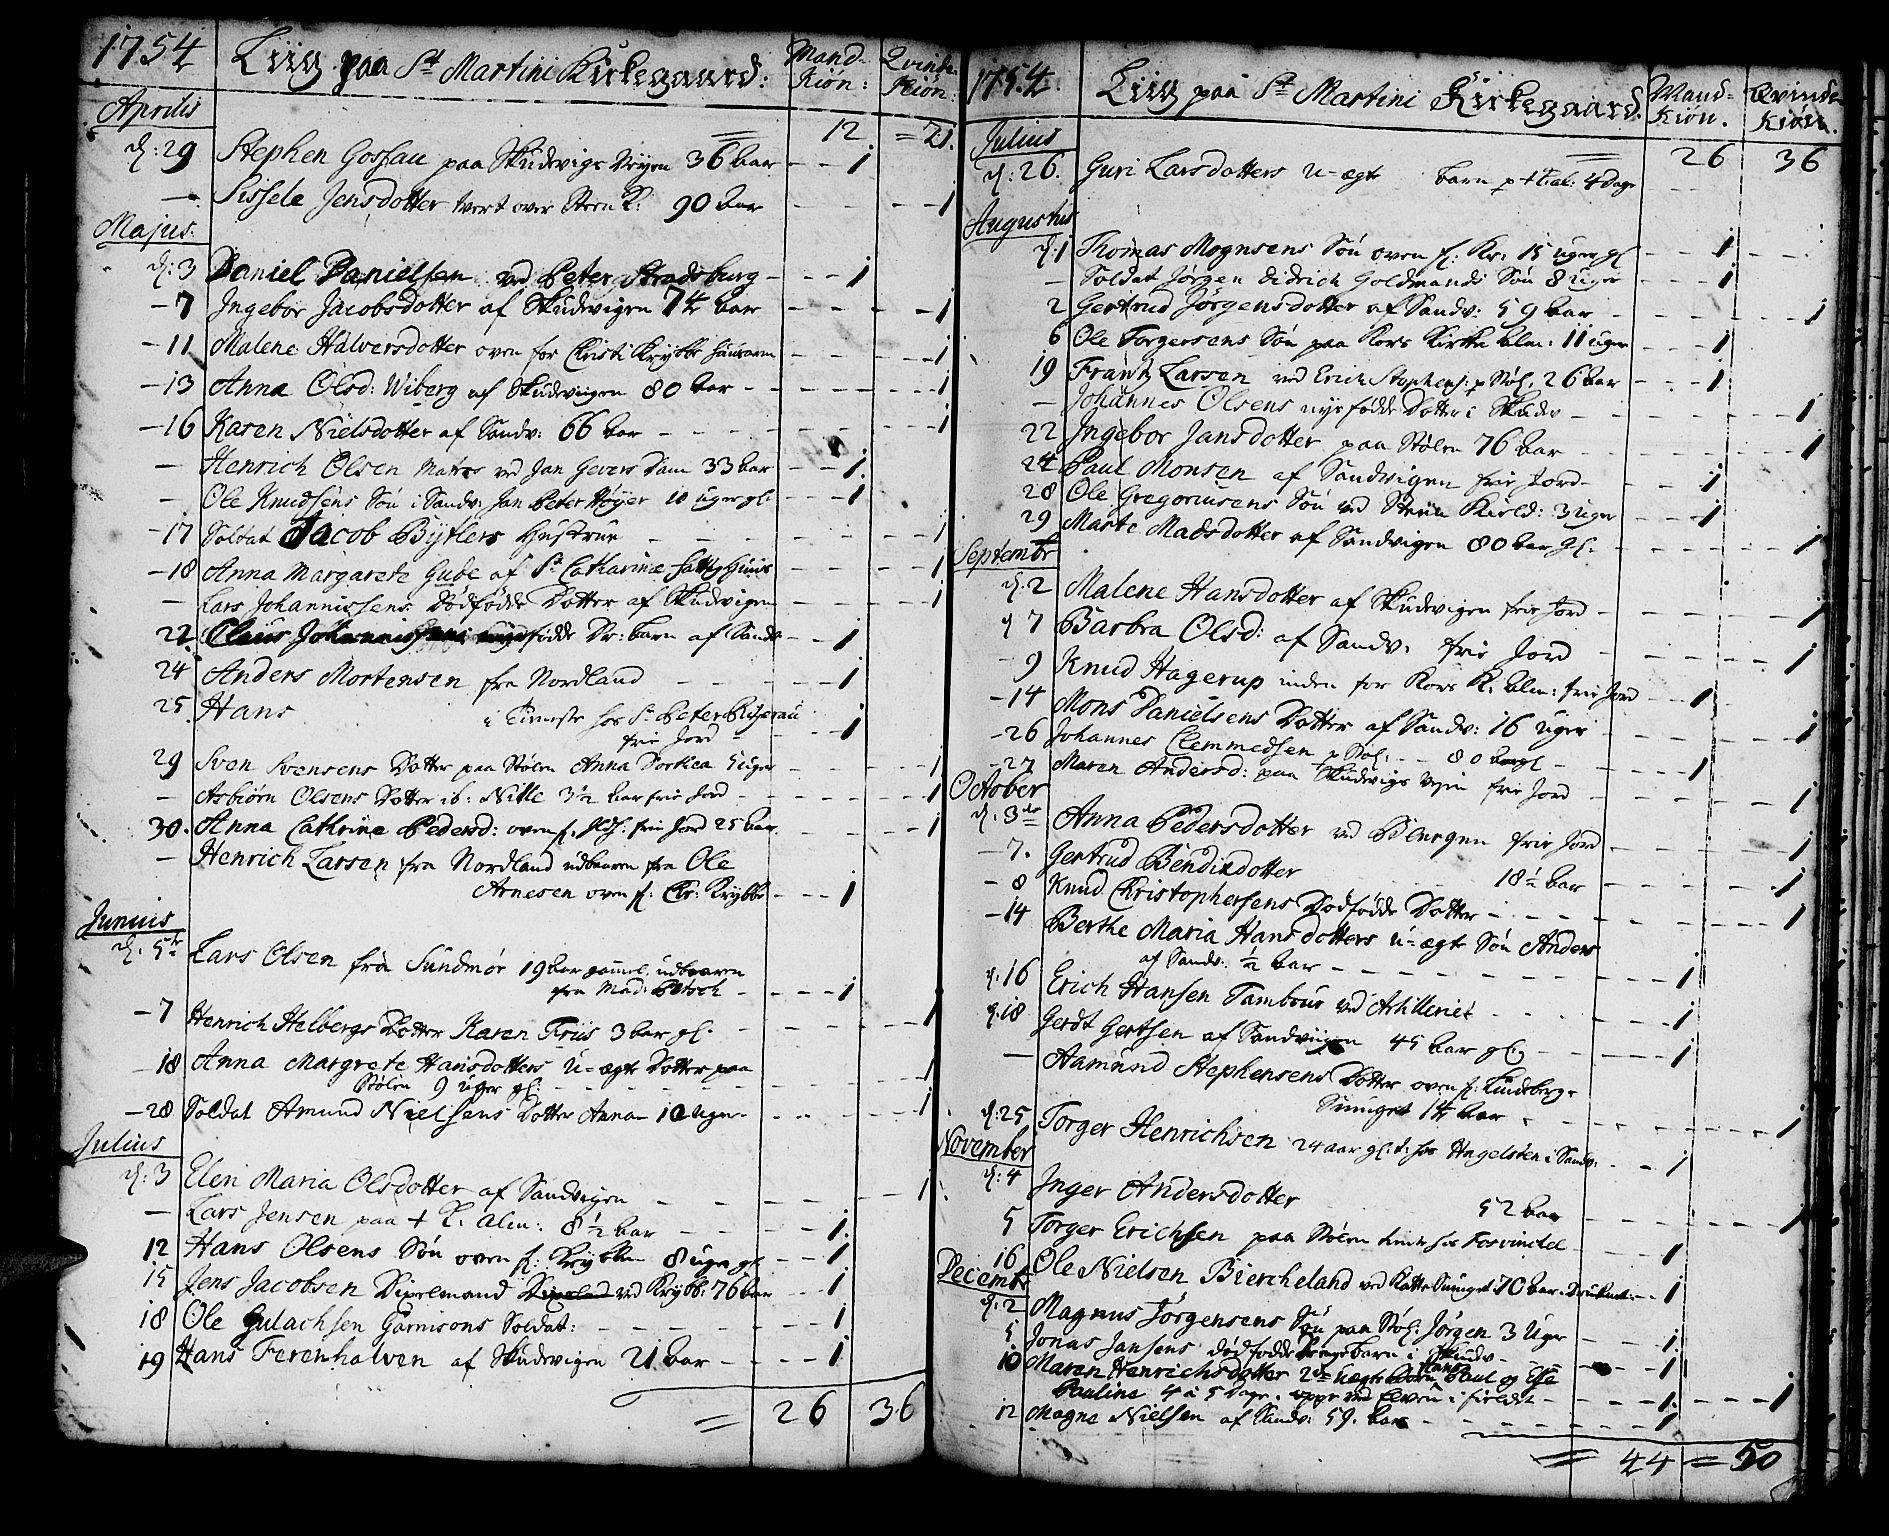 1754 Liig paa St Martini Kirkegaard: Mand- Kiøn: Qvinde- Kiøn:
Aprilis
12 = 21.
d: 29 Stephen Gossau paa Skudvigs Veyen 36 aar - - 1
- Sissele Jensdotter tvert over Steen K: 90 aar - - - 1
Majus.
d: 3 Daniel Danielsen ved Peter Stradsburg - - - 1
- 7 Ingebor Jacobsdotter af Skudvigen 74 aar - - - 1
- 11 Malene Halversdotter oven for Christi Krybbe - - - 1
- 13 Anna Olsd: Wiberg af Skudviigen 80 aar - - - 1
- 16 Karen Nielsdotter af Sandv: 66 aar - - - 1
- Henrich Olsen Matros ved Jan Gevers Dam 33 aar - - 1.
- Ole Knudsens Søn i Sandv: Jan Peter Høyer 10 uger gl: - - 1
- 17 Soldat Jacob Bytlers Hustrue - - - 1
- 18 Anna Margarete Gude af St Catharinæ fattig Huus - - - 1
- Lars Johannissens Dödfödde Dotter af Skudvigen - - - 1
22. Claus Johannissens födde Dr: barn af Sandv - - 1
24 Anders Mortensen fra Nordland - - - 1
25 Hans i tieneste hos Sr Peter
frie Jord - - - 1
29 Sven Svensens Dotter paa Stölen Anna Dorthea 5 uger - - - 1
- Asbiørn Olsens Dotter ib: Nille 3 1/2 aar frie Jord - - - 1
30. Anna Cathrine Pedersd: oven f. frie Jord 25 aar - - - 1
- Henrich Larsen fra Nordland udbaaren fra Ole
Arnesen oven f: Chr: Krybbe - - - 1
Junius
d: 5te Lars Olsen fra Sundmör 19 aar gammel, udbaaren
fra Mad: - - - 1
- 7 Henrich Helbergs Dotter Karen Friis 3 aar gl. - - - 1
- 18 Anna Margrete Hansdotters u-ægte Dotter paa
Stölen 9 uger gl: - - - 1
- 28 Soldat Amund Nielsens Dotter Anna 10 uger - - - 1
Julius
d: 3 Elen Maria Olsdotter af Sandvigen - - - 1
- Lars Jensen paa + K. Alm: 8 1/2 aar - - - 1.
12 Hans Olsens Søn oven f: Krybben 8 uger gl - - - 1
15 Jens Jacobsen ved Krybb: 76 aar - - 1
18 Ole Gulachsen Garnisons Soldat: - - - 1
19 Hans Ferenhalven af Skudvigen 21 aar - - - 1
= 26 36
1754. Liig paa St Martini Kirkegaard. Mand- Kiøn. Qvinde- Kiøn.
Julius
= 26 36
d: 26. Guri Larsdotters u-ægte barn p + K. al: 4 Dage
Augustus
d. 1 Thomas Mognsens Søn oven f: Kr: 15 uger gl - - 1
- Soldat Jørgen Didrich Goldmands Søn 8 uger - - 1
2 Gertrud Jörgensdotter af Sandv: 59 aar - - - 1
6 Ole Torgersens Søn paa Kors Kirke Alm: 11 uger - - 1
19 Frantz Larsen ved Erich Stephens: p Stöl. 26 aar - - 1
- Johannes Olsens nyefödde Dotter i Skudv - - - 1
22 Ingebor Jansdotter paa Stölen 76 aar - - - 1
24 Paul Monsen af Sandvigen frie Jord - - 1
28 Ole Gregoriusens Søn ved Steen Kield: 3 uger - - 1
29 Marte Madsdotter af Sandvigen 80 aar gl. - - - 1
Septembr
d. 2 Malene Hansdotter af Skudvigen frie Jord - - - 1
d 7 Barbra Olsd: af Sandv. frie Jord - - - 1
- 9 Knud Hagerup inden for Kors K. Alm: frie Jord - - 1
- 14 Mons Danielsens Dotter af Sandv: 16 uger - - - 1
- 26 Johannes Clemmedsen p Stöl. - - 80 aar gl - - 1
- 27 Maren Andersd: paa Skudvigs Veyen frie Jord - - - 1
October
d. 3die Anna Pedersdotter ved frie Jord - - - 1
- 7. Gertrud Bendixdotter 18 1/2 aar - - - 1
- 8 Knud Christophersens Dödfödde Dotter - - - 1
- 14 Berthe Maria Hansdotters u-ægte Søn Anders
af Sandv. 1/2 aar - - - 1
d. 16 Erich Hansen Tambour ved Artilleriet - - - 1
d. 18 Gerdt Gertsen af Sandviigen 45 aar gl: - - - 1
- Aamund Stephensens Dotter oven f: Lindebergs
Smuget 14 aar - - - 1
d: 25 Torger Henrichsen 24 aar gl: t: hos Engelsken i Sandv: - - 1
November
d: 4 Inger Andersdotter 52 aar - - - 1
5 Torger Erichsen paa Stölen - - - 1
16 Ole Nielsen Biercheland ved Katte Smuget 70 aar. Druknet. - - 1
Decembr
d. 2 Magnus Jörgensens Søn paa Stöl. Jörgen 3 uger - - 1.
5 Jonas Jansens dödfödde Drengebarn i Skudv - - - 1
10 Maren Henrichsdotter 2de uægte Börn Hans Paul og Else
Pauline 4 à 5 Dage. oppe ved Elven i fieldet - - 1. - 1
12 Magne Nielsen af Sandv: 59. aar - - - 1
= 44 = 50